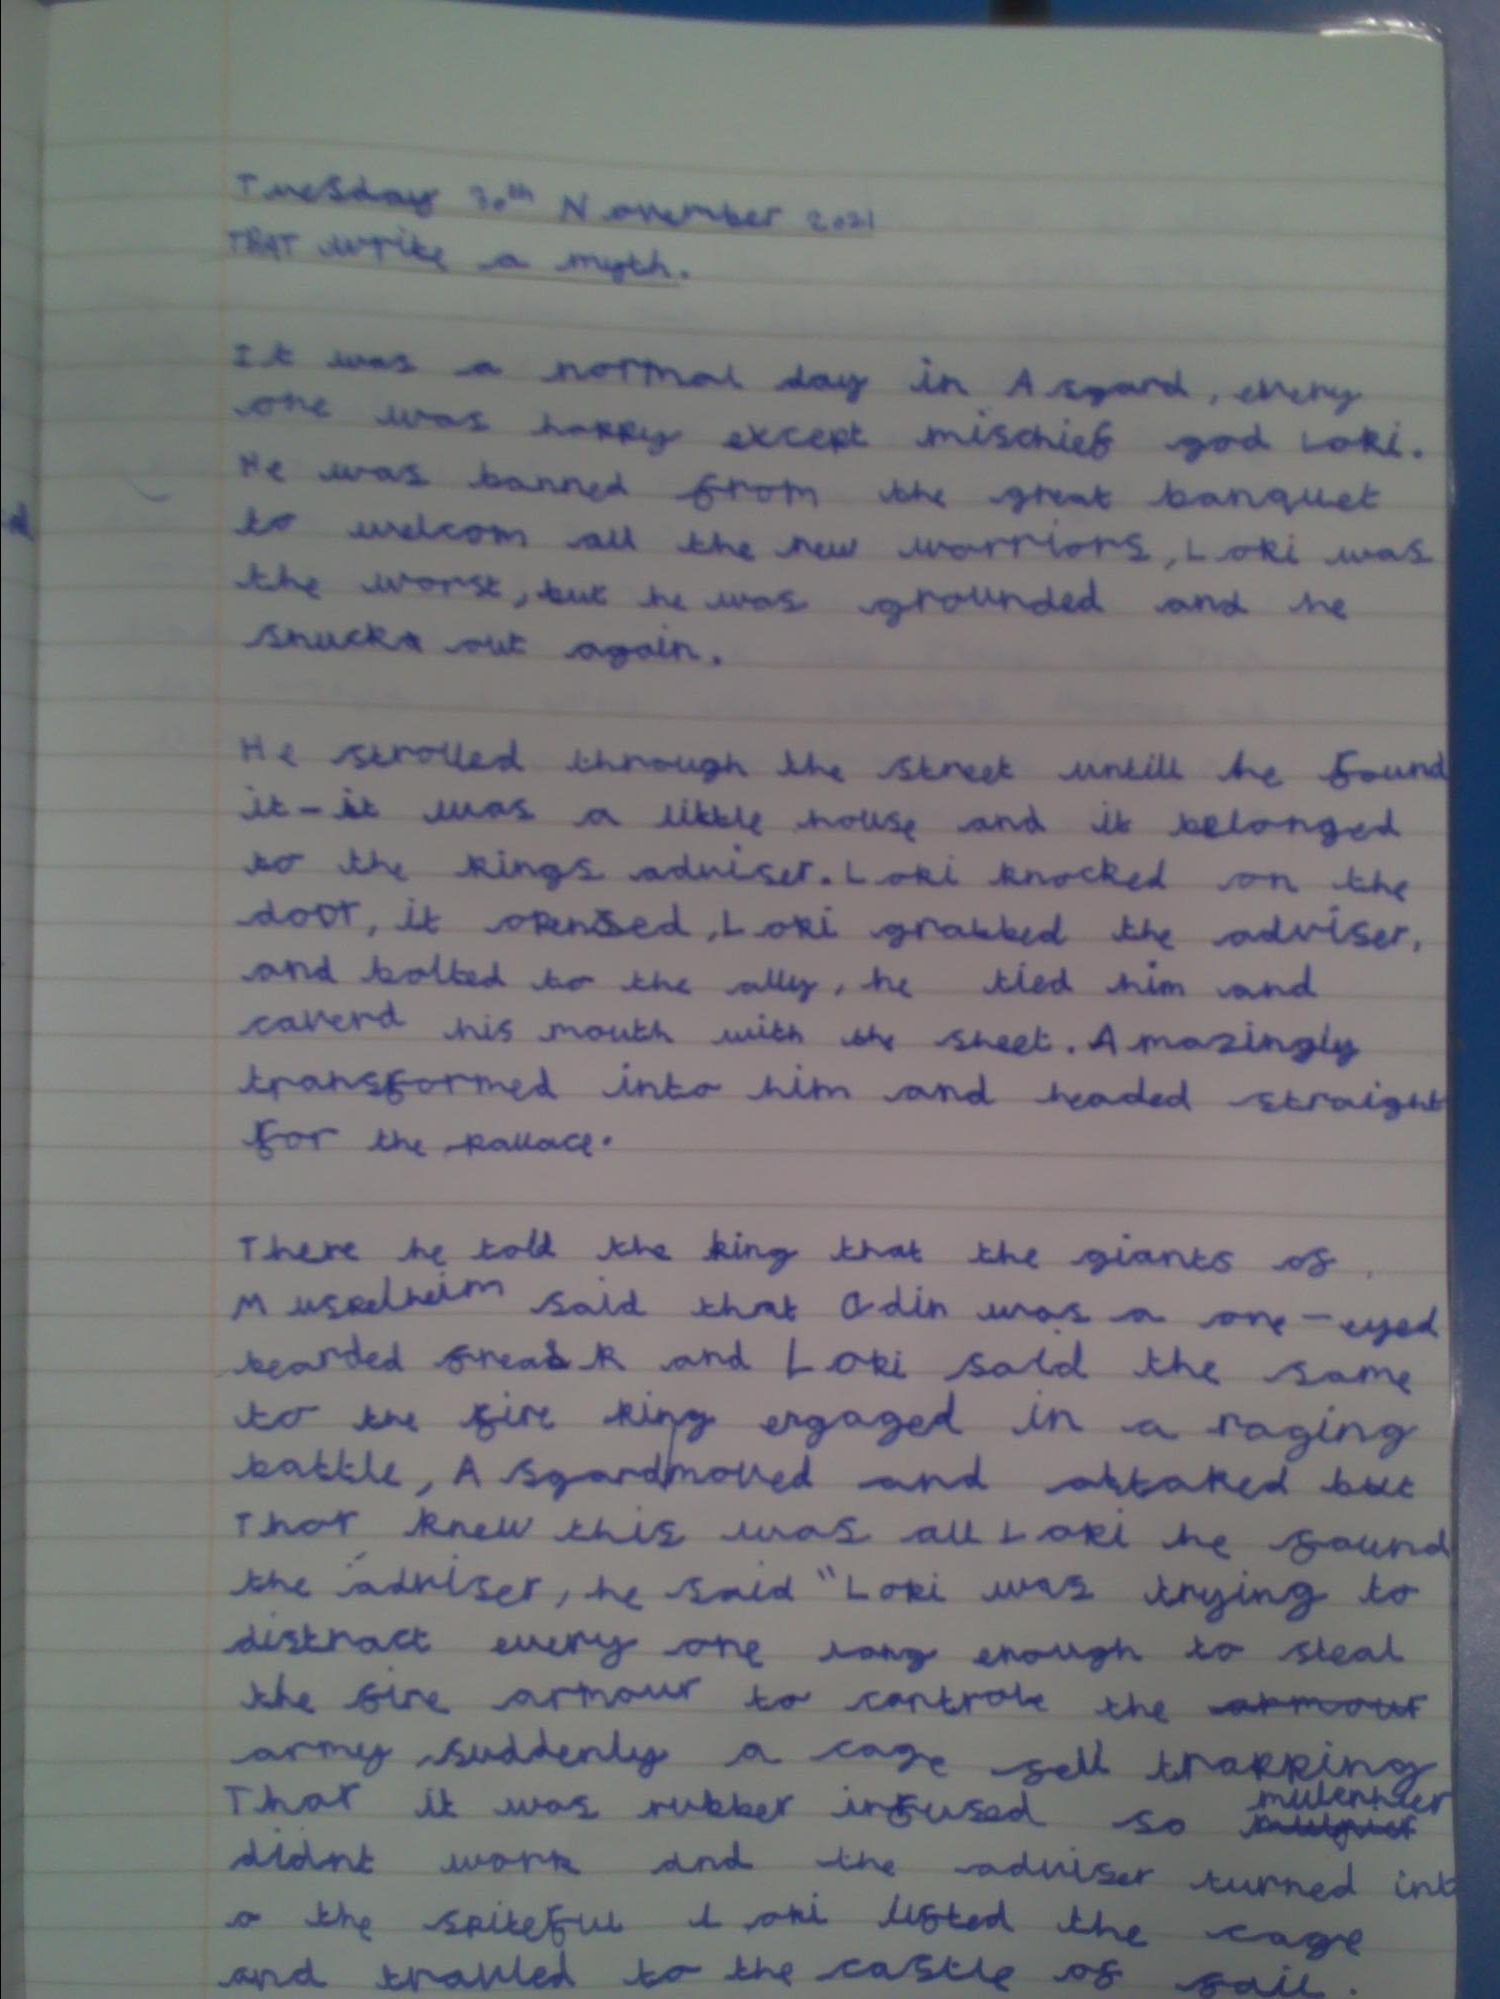 Tuesday 30th November 2021
THAT write a myth.
It was a normal day in Asgard, every
one was happy except mischief god Loki.
He was banned from the great banquet
to welcom all the new warriors, Loki was
the worst, but he was grounded and he
snuck out again.
He strolled through the street untill he found
it - it was a little house and it belonged
to the kings adviser. Loki knocked on the
door, it opened, Loki grabbed the adviser,
and bolted to the ally, he tied him and
coverd his mouth with the sheet. Amazingly
transformed into him and headed straight
for the pallace.
There he told the king that the giants of
Muspelheim said that Odin was a one-eyed
bearded freak and Loki said the same
to the fire king engaged in a raging
battle, Asgard moved and attaked but
Thor knew this was all Loki he found
the adviser, he said "Loki was trying to
distract every one long enough to steal
the fire armour to controle the armour
army suddenly a cage fell trapping
Thor it was rubber infused so
didnt work and the adviser turned int
o the spiteful Loki lifted the cage
and travled to the castle of